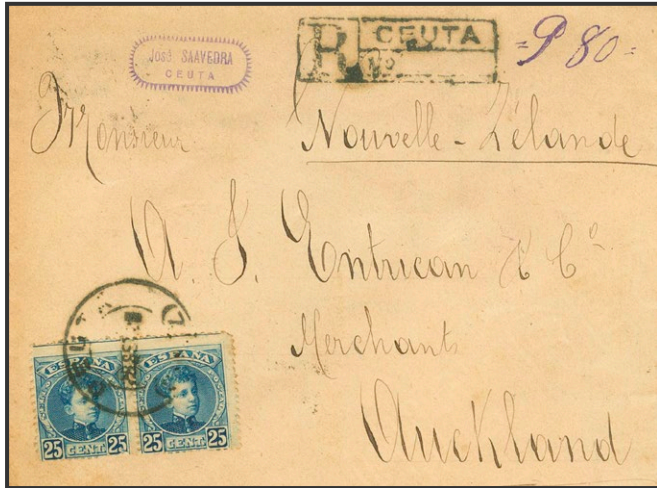 José SAAVEDRA
CEUTA
R CEUTA
Nº
=P 80=
Monsieur
Nouvelle-Zélande
A. J. Entrican & Cº
Merchants
Auckland
ESPAÑA ESPAÑA
25 CENT. 25 25 CENT. 25